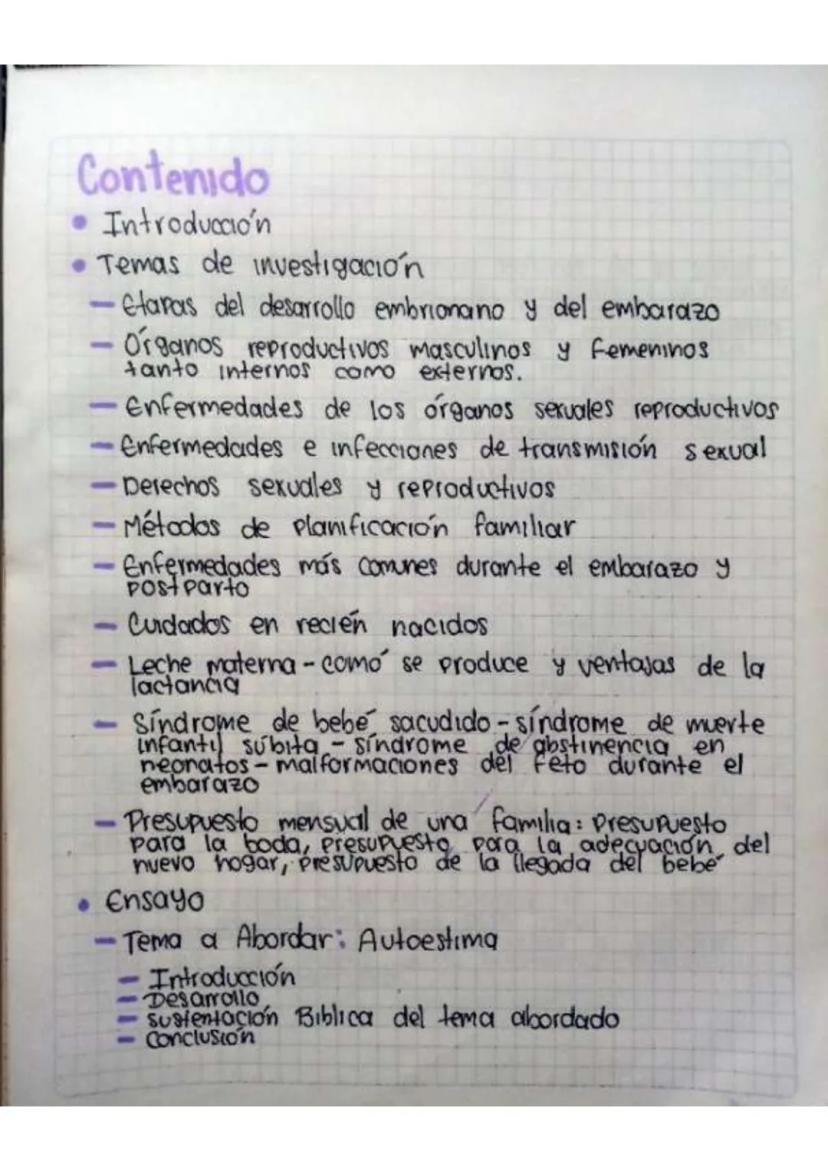 Contenido
• Introducción
• Temas de investigación
— Etapas del desarrollo embrionario y del embarazo
— Órganos reproductivos masculinos y femeninos
tanto internos como externos.
— Enfermedades de los órganos sexuales reproductivos
— Enfermedades e infecciones de transmisión sexual
— Derechos sexuales y reproductivos
— Métodos de planificación familiar
— Enfermedades más comunes durante el embarazo y
postparto
— Cuidados en recién nacidos
— Leche materna - como se produce y ventajas de la
lactancia
— Síndrome de bebé sacudido - síndrome de muerte
infantil súbita - síndrome de abstinencia en
neonatos - malformaciones del feto durante el
embarazo
— Presupuesto mensual de una familia: Presupuesto
para la boda, presupuesto para la adecuación del
nuevo hogar, presupuesto de la llegada del bebé
• Ensayo
— Tema a Abordar: Autoestima
— Introducción
— Desarrollo
— Sustentación Biblica del tema abordado
— Conclusión